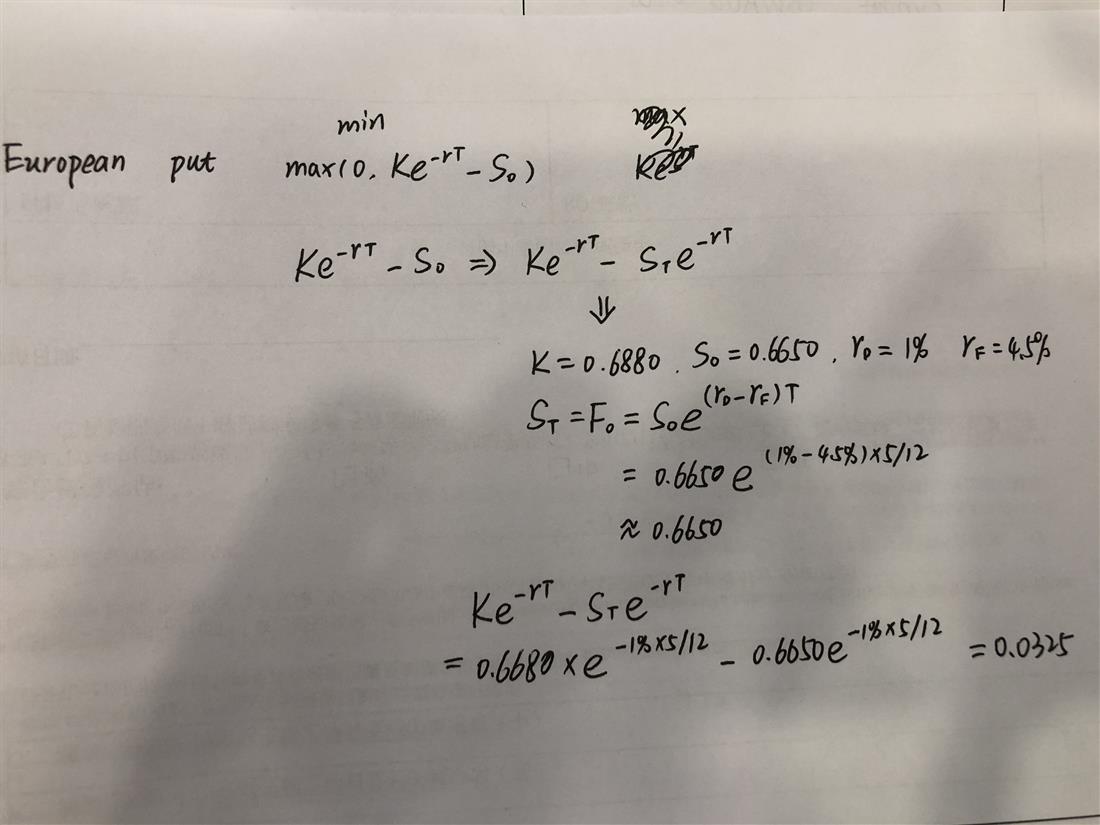 min
European put max(0, Ke^{-rT} - S₀)
Ke^{-rT} - S₀ ⇒ Ke^{-rT} - S_T e^{-rT}
⇓
K = 0.6880, S₀ = 0.6650, r_D = 1% r_F = 4.5%
S_T = F₀ = S₀e^{(r_D - r_F)T}
= 0.6650 e^{(1% - 4.5%)×5/12}
≈ 0.6650
Ke^{-rT} - S_T e^{-rT}
= 0.6680 × e^{-1%×5/12} - 0.6650e^{-1%×5/12} = 0.0325